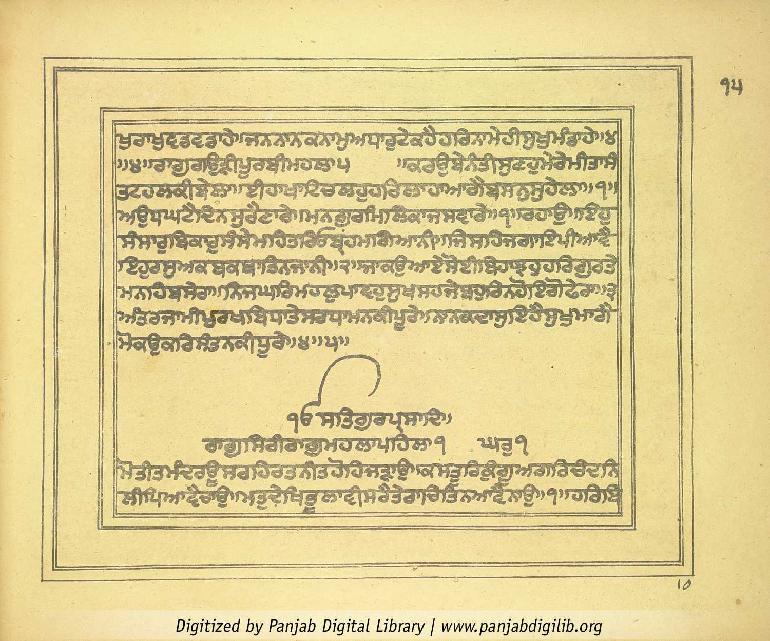 ੧੫
ਖੁਰਾਖੁਦਡਟਡਾਹੇ॥ਜਨਨਾਨਕਨਾਮੁਅਧਾਰੁਟੇਕਹੈਹਰਿਨਾਮੇਹੀਸੁਖੁਮੰਡਾਹੇ॥੪
॥੪॥ਰਾਗੁਗਉੜੀਪੂਰਬੀਮਹਲਾ੫ ॥ਕਰਉਬੇਨੰਤੀਸੁਣਹੁਮੇਰੇਮੀਤਾਸੰ
ਤਟਹਲਕੀਬੇਲਾ॥ਈਹਾਖਾਟਿਚਲਹੁਹਰਿਲਾਹਾਆਗੈਬਸਨੁਸੁਹੇਲਾ॥੧॥
ਅਉਧਘਟੈਦਿਨਸੁਰੈਣਾਰੇ॥ਮਨਗੁਰਮਿਲਿਕਾਜਸਵਾਰੇ॥੧॥ਰਹਾਉ॥ਇਹੁ
ਸੰਸਾਰੁਬਿਕਾਰੁਸੰਸੇਮਹਿਤਰਿਓਬ੍ਰਹਮਗਿਆਨੀ॥ਜਿਸਹਿਜਗਾਇਪੀਆਵੈ
ਇਹੁਰਸੁਅਕਥਕਥਾਤਿਨਜਾਨੀ॥੨॥ਜਾਕਉਆਏਸੋਈਬਿਹਾਝਹੁਹਰਿਗੁਰਤੇ
ਮਨਹਿਬਸੇਰਾ॥ਨਿਜਘਰਿਮਹਲੁਪਾਵਹੁਸੁਖਸਹਜੇਬਹੁਰਿਨਹੋਇਗੋਫੇਰਾ॥੩
ਅੰਤਰਜਾਮੀਪੁਰਖਬਿਧਾਤੇਸਰਧਾਮਨਕੀਪੂਰੇ॥ਨਾਨਕਦਾਸੁਇਹੈਸੁਖੁਮਾਗੈ
ਮੋਕਉਕਰਿਸੰਤਨਕੀਧੂਰੇ॥੪॥੫॥
ੴਸਤਿਗੁਰਪ੍ਰਸਾਦਿ॥
ਰਾਗੁਸਿਰੀਰਾਗੁਮਹਲਾਪਹਿਲਾ੧ ਘਰੁ੧
ਮੋਤੀਤਮੰਦਰਊਸਰਹਿਰਤਨੀਤਹੋਹਿਜੜਾਉ॥ਕਸਤੂਰਿਕੁੰਗੂਅਗਰਿਚੰਦਨਿ
ਲੀਪਿਆਵੈਚਾਉ॥ਮਤੁਦੇਖਿਭੂਲਾਵੀਸਰੈਤੇਰਾਚਿਤਿਨਆਵੈਨਾਉ॥੧॥ਹਰਿਬਿ
10
Digitized by Panjab Digital Library | www.panjabdigilib.org